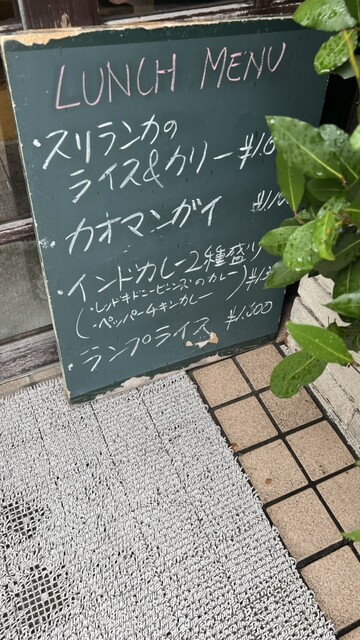 LUNCH MENU
・スリランカの
ライス&カリー
・カオマンガイ
・インドカレー2種盛り
(・レッドキドニービーンズのカレー
・ペッパーチキンカレー)
・ランプライス ¥1.300